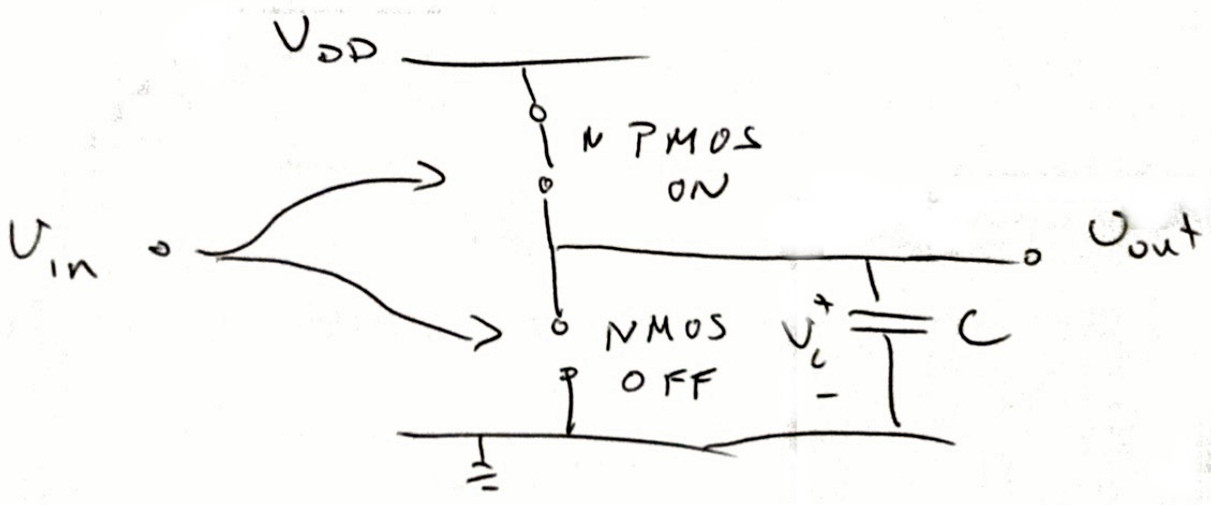 VDD
N PMOS
ON
Vin
Vout
NMOS
OFF
+
Vc
-
C